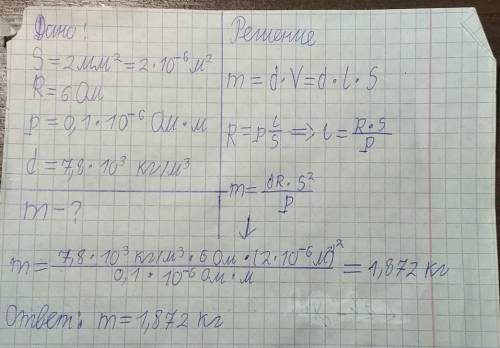 Дано:
S = 2 мм² = 2 · 10⁻⁶ м²
R = 6 Ом
p = 0,1 · 10⁻⁶ Ом · м
d = 7,8 · 10³ кг/м³
m - ?
Решение
m = d · V = d · l · S
R = p l/S => l = R · S/p
m = dR · S²/p
m = 7,8 · 10³ кг/м³ · 6 Ом · (2 · 10⁻⁶ м²)²/0,1 · 10⁻⁶ Ом · м = 1,872 кг
Ответ: m = 1,872 кг